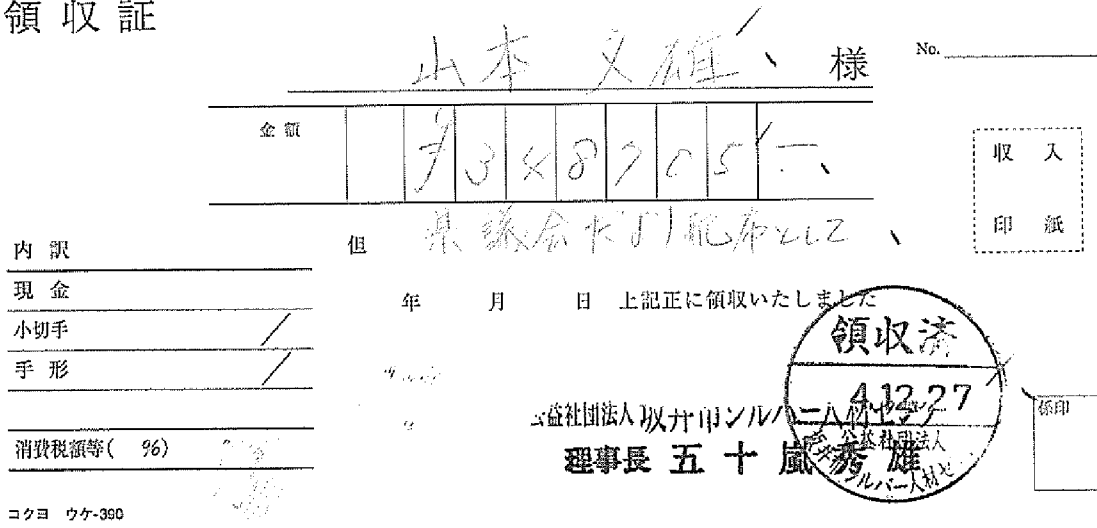 領収証
山本 文雄 様
No.
金額 ¥348705-
収入
印紙
但 県議会だより配布として
内訳
現金
年 月 日 上記正に領収いたしました
小切手
手形
領収済
4.12.27
公益社団法人
坂井市シルバー人材セ
公益社団法人 坂井市シルバー人材センター
理事長 五十嵐 秀雄
係印
消費税額等( %)
コクヨ ウケ-390